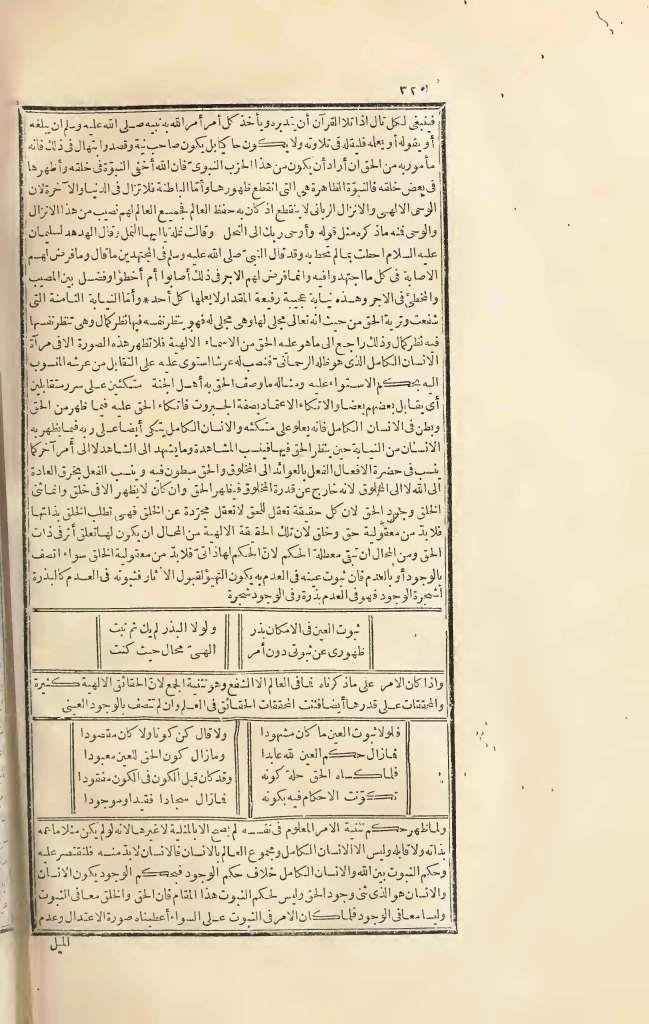 ٣٢٥
فينبغى لكل تال اذا تلا القرآن أن يتدبره ويأخذ كل أمر أمر الله به نبيه صلى الله عليه وسلم ان يبلغه
أو يقوله أو يعلمه فليقله فى تلاوته ولا يكون حا كيا بل يكون صاحب نية وقصد وابتهال فى ذلك فانه
مأمور به من الحق ان أراد أن يكون من هذا الحزب النبوى فان الله أخفى النبوّة فى خلقه وأظهرها
فى بعض خلقه فالنبوّة الظاهرة هى التى انقطع ظهورها وأمّا الباطنة فلا تزال فى الدنيا والآخرة لان
الوحى الالهى والانزال الربانى لا ينقطع اذ كان به حفظ العالم فجميع العالم لهم نصيب من هذا الانزال
والوحى فمنه ما ذكره مثل قوله وأوحى ربك الى النحل وقالت نملة يا ايها النمل وقال الهدهد لسليمان
عليه السلام احطت بما لم تحط به وقد قال النبىّ صلى الله عليه وسلم فى المجتهدين ما قال وما فرض لهم
الاصابة فى كل ما اجتهدوا فيه وانما فرض لهم الاجر فى ذلك أصابوا أم أخطؤا وفضل بين المصيب
والمخطئ فى الاجر وهذه نيابة عجيبة رفيعة المقدار لا يعلمها كل أحد * وأمّا النيابة الثامنة التى
شفعت وترية الحق من حيث انه تعالى مجلى لها وهى مجلى له فهو ينظر نفسه فيها نظر كمال وهى تنظر نفسها
فيه نظر كمال وذلك راجع الى ما هو عليه الحق من الاسماء الالهية فلا تظهر هذه الصورة الا فى مرآة
الانسان الكامل الذى هو ظله الرحمانى فنصب له عرشا استوى عليه على التقابل من عرشه المنسوب
اليه بحكم الاستواء عليه ومثاله ما وصف الحق به أهل الجنة متكئين على سرر متقابلين
أى يقابل بعضهم بعضا والاتكاء الاعتماد بصفة الجبروت فاتكاء الحق عليه فيما ظهر من الحق
وبطن فى الانسان الكامل فانه يعلو على متكئه والانسان الكامل يتكى أيضا على ربه فيما يظهر به
الانسان من النيابة حين يستتر الحق فيها فينسب المشاهدة وما يشهد الى الشاهد لا الى أمر آخر كما
ينسب فى حضرة الافعال الفعل بالعوائد الى المخلوق والحق مبطون فيه وينسب الفعل بخرق العادة
الى الله لا الى المخلوق لانه خارج عن قدرة المخلوق فيظهر الحق وان كان لا يظهر الا فى خلق وانما ثنى
الخلق وجود الحق لان كل حقيقة تعقل للحق لا تعقل مجرّدة عن الخلق فهى تطلب الخلق بذاتها
فلا بدّ من معقولية حق وخلق لان تلك الحقيقة الالهية من المحال ان يكون لها تعلق أثر فى ذات
الحق ومن المحال ان تبقى معطلة الحكم لانّ الحكم لها ذاتى فلا بدّ من معقولية الخلق سواء اتصف
بالوجود أو بالعدم فان ثبوت عينه فى العدم به يكون التهيؤ لقبول الآثار فثبوته فى العدم كالبذرة
لشجرة الوجود فهو فى العدم بذرة وفى الوجود شجرة
ثبوت العين فى الامكان بذر ولولا البذر لم يك ثم نبت
ظهورى عن ثبوتى دون أمر الهىّ محال حيث كنت
واذا كان الامر على ما ذكرناه فما فى العالم الا الشفع وهو تثنية الجمع لانّ الحقائق الالهية كثيرة
والمحققات على قدرها أيضا فثنت المحققات الحقائق فى العلم وان لم تتصف بالوجود العينى
فلولا ثبوت العين ما كان مشهودا ولا قال كن كونا ولا كان مقصودا
فما زال حكم العين لله عابدا وما زال كون الحق للعين معبودا
فلما كساه الحق حلة كونه وقد كان قبل الكون فى الكون مفقودا
تكوّنت الاحكام فيه بكونه فما زال سجادا فقيدا وموجودا
ولما ظهر حكم تثنية الامر المعلوم فى نفسه لم يصح الا بالمثلية لا غيرها لانه لو لم يكن مثلا ما عمه
بذاته ولا قابله وليس الا الانسان الكامل ومجموع العالم بالانسان فالانسان لا بدّ منه فلنقتصر عليه
وحكم الثبوت بين الله والانسان الكامل خلاف حكم الوجود فبحكم الوجود يكون الانسان
والانسان هو الذى ثنى وجود الحق وليس لحكم الثبوت هذا المقام فان الحق والخلق معا فى الثبوت
وليسا معا فى الوجود فلما كان الامر فى الثبوت على السواء أعطيناه صورة الاعتدال وعدم
الميل